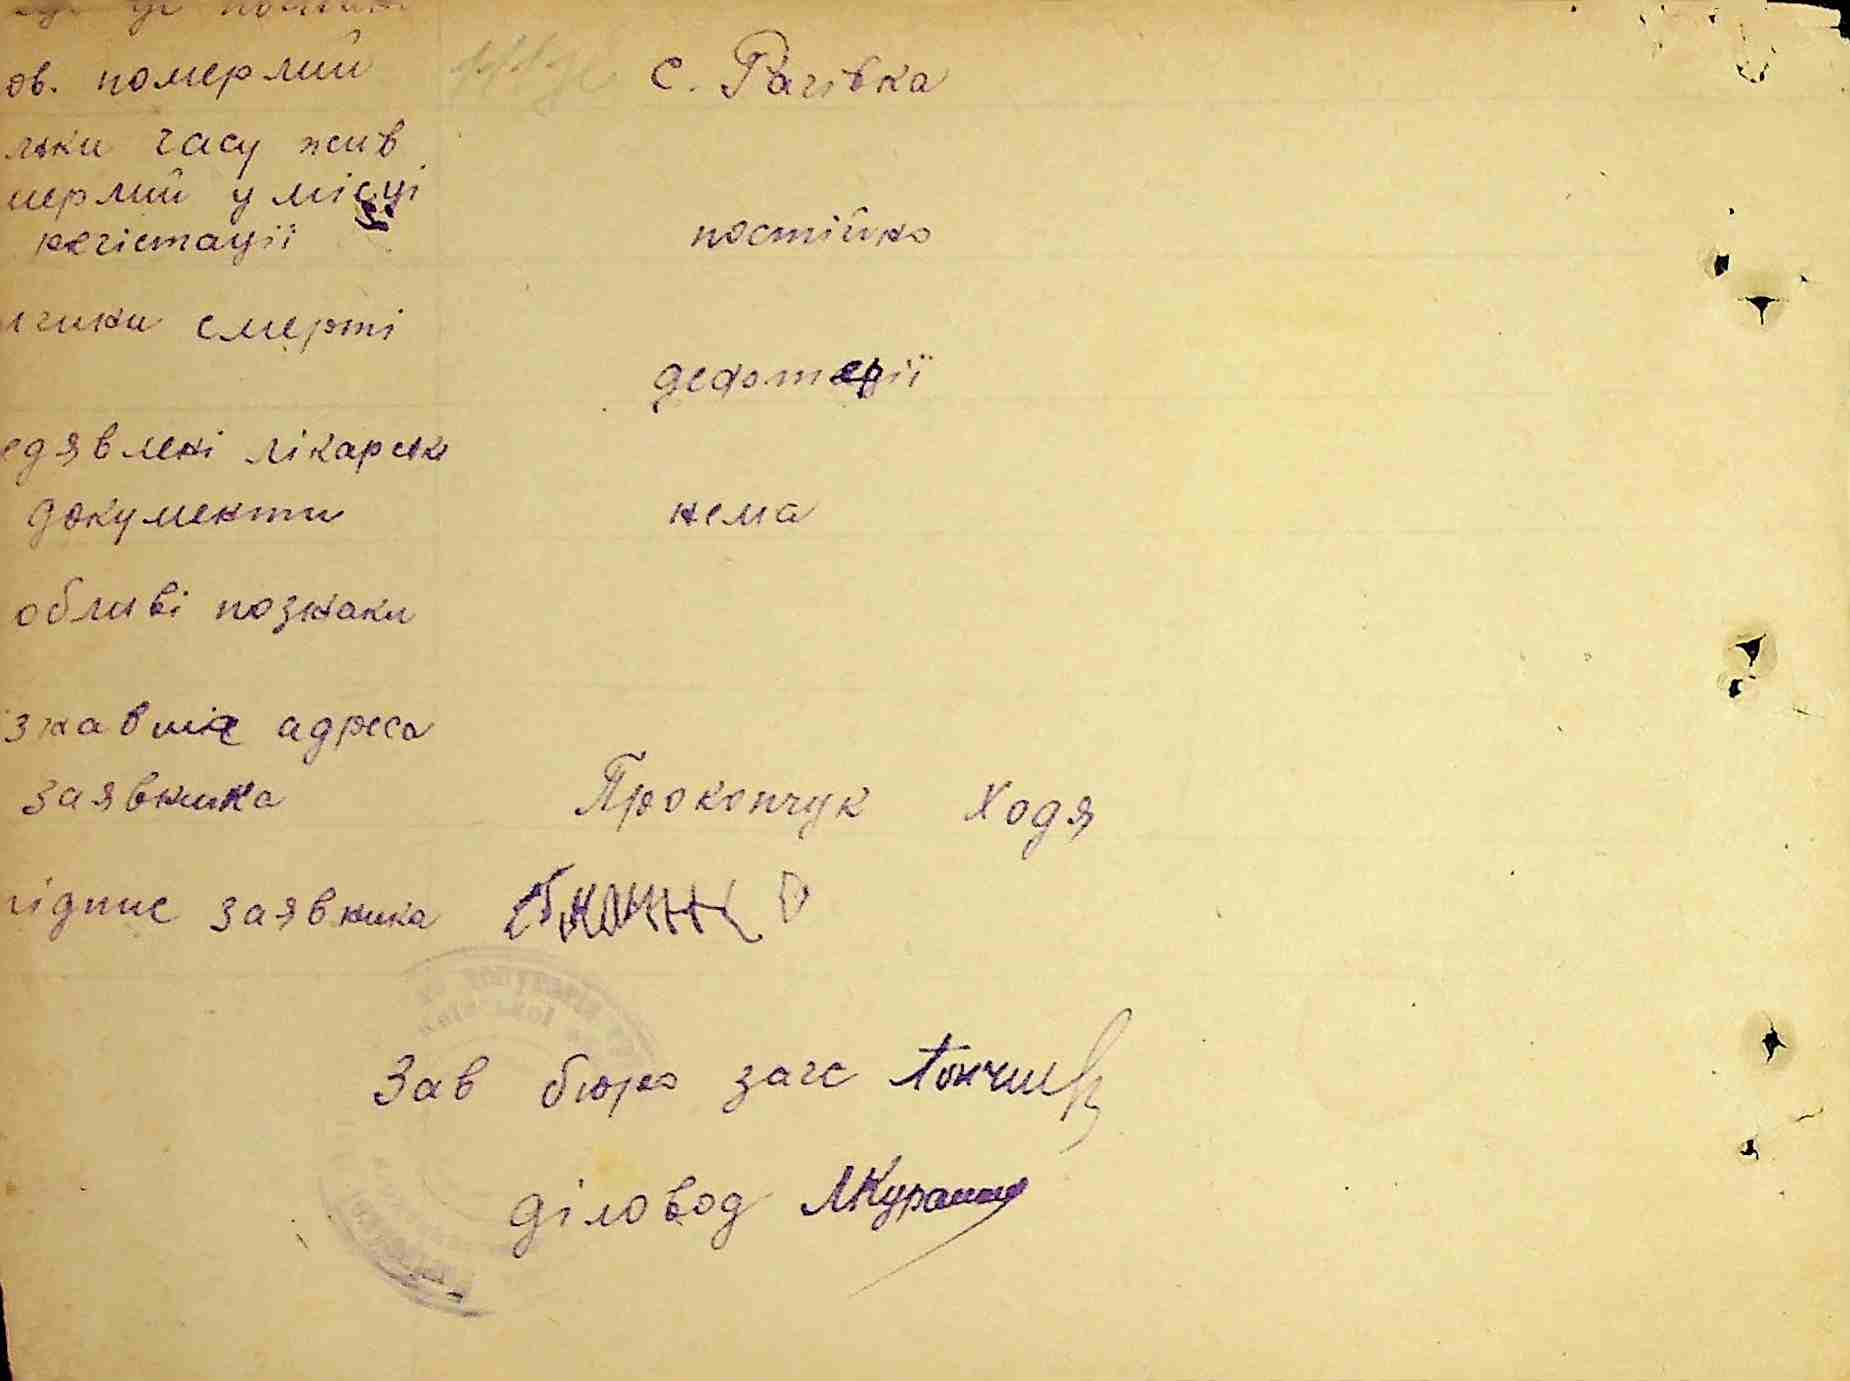 ов. померлий с. Рагівка
льки часу жив
мерлий у місці
регістації постійно
ичини смерті
дефотерії
едявлені лікарськ
документи нема
обливі познаки
адреса
заявника Прокопчук Ходя
підпис заявника
Зав бюро загс
діловод